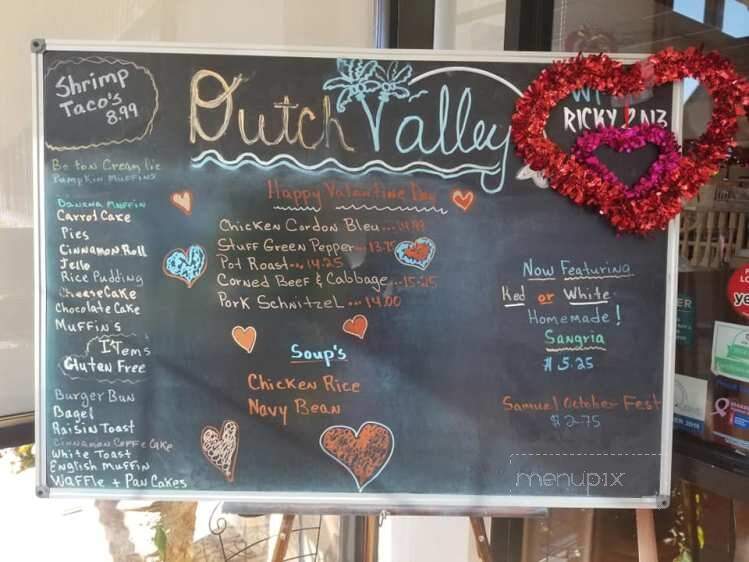 Shrimp
Taco's
8.99
Dutch Valley
RICKY
Boston Cream Pie
Pumpkin Muffins
Banana Muffin
Carrot Cake
Pies
Cinnamon Roll
Jello
Rice Pudding
Cheese Cake
Chocolate Cake
Muffins
ITems
Gluten Free
Burger Bun
Bagel
Raisin Toast
Cinnamon Coffe Cake
White Toast
English Muffin
Waffle + Pan Cakes
Happy Valantine Day
Chicken Cordon Bleu
Stuff Green Pepper... 13.75
Pot Roast... 14.25
Corned Beef & Cabbage... 15.25
Pork Schnitzel... 14.00
Soup's
Chicken Rice
Navy Bean
Now Featuring
Red or White
Homemade!
Sangria
$ 5.25
Samuel October Fest
$ 2.75
menupix